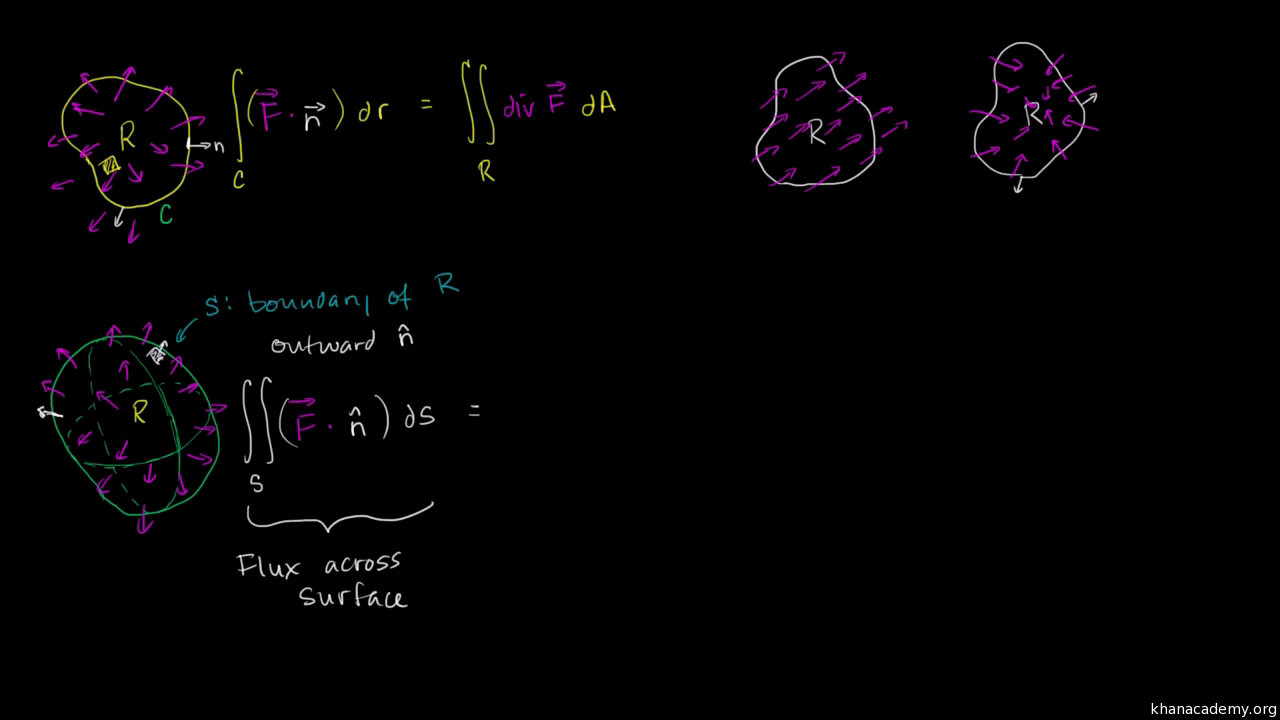 R
n
C
∫_C (F⃗ · n⃗) dr = ∬_R div F⃗ dA
R
R
S: boundary of R
outward n̂
R
∬_S (F⃗ · n̂) dS =
Flux across
surface
khanacademy.org